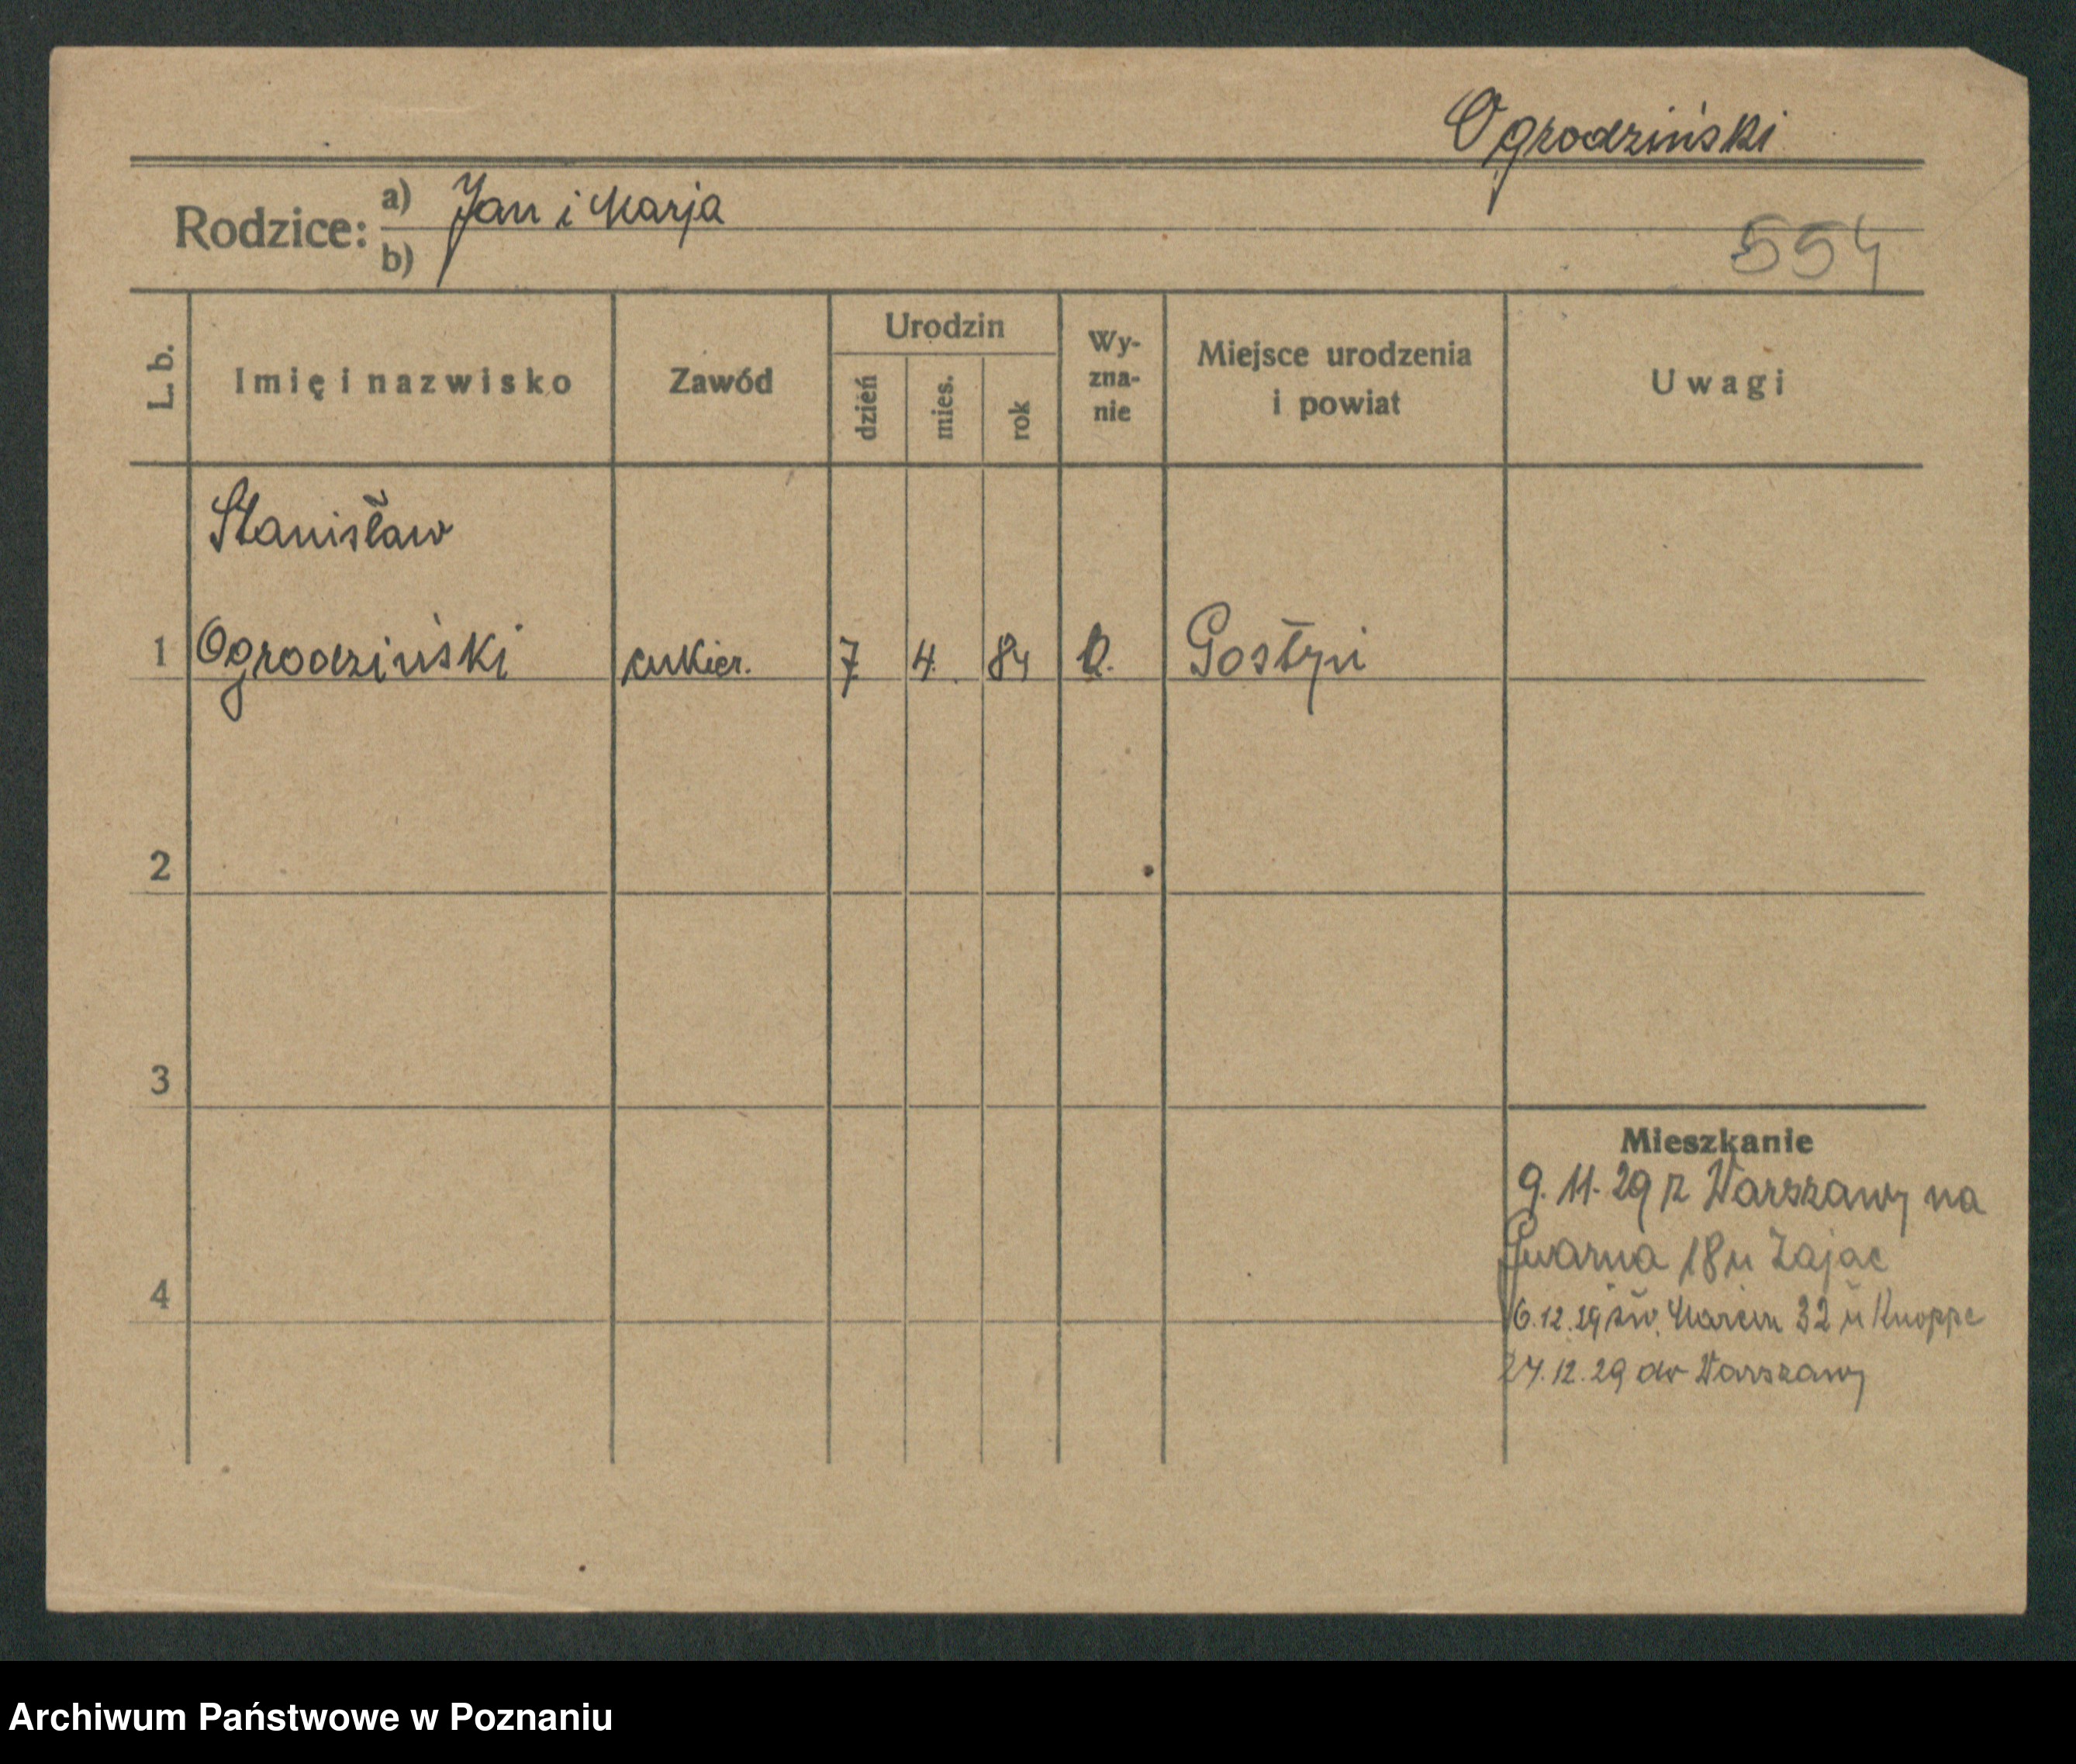 Ogrodziński
Rodzice: a) Jan i Marja
b)
554
L. b. Imię i nazwisko Zawód Urodzin dzień mies. rok Wy-zna-nie Miejsce urodzenia i powiat Uwagi
Stanisław
1 Ogrodziński cukier. 7 4. 84 k. Gostyń
2
3
Mieszkanie
9. 11. 29 z Warszawy na
Gwarna 18 u Zając
4
6.12.29 św. Marcin 32 u Knoppe
27.12.29 do Warszawy
Archiwum Państwowe w Poznaniu